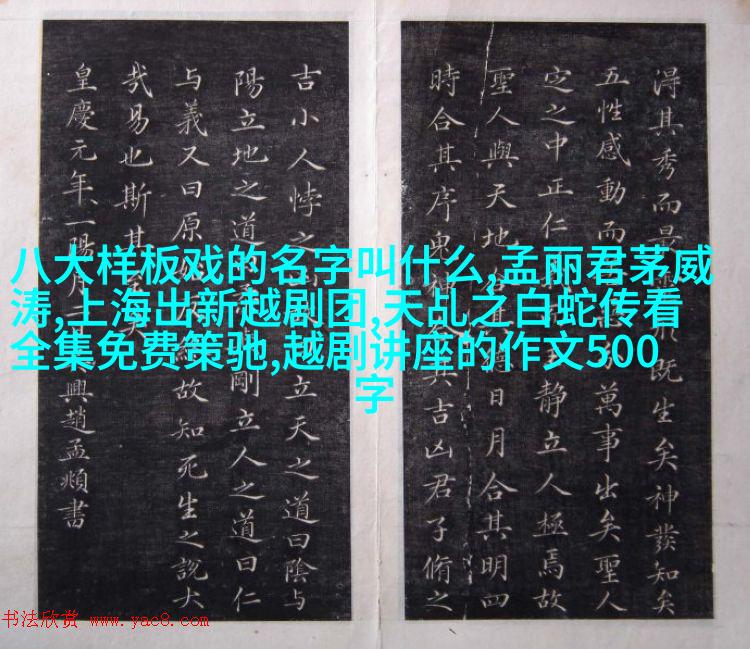 八大样板戏的名字叫什么,孟丽君茅威
涛,上海出新越剧团,天乩之白蛇传看
全集免费策驰,越剧讲座的作文500
字
得其秀而最既生矣神發知矣
五性感動而萬事出矣聖人
定之中正仁静立人極焉故
聖人與天地日月合其明四
時合其序鬼神其吉凶君子脩之
吉小人悖之立天之道曰陰与
陽立地之道剛立人之道曰仁
与義又曰原故知死生之說大
哉易也斯其
皇慶元年一陽月興趙孟頫書
书法欣赏 www.yac8.com